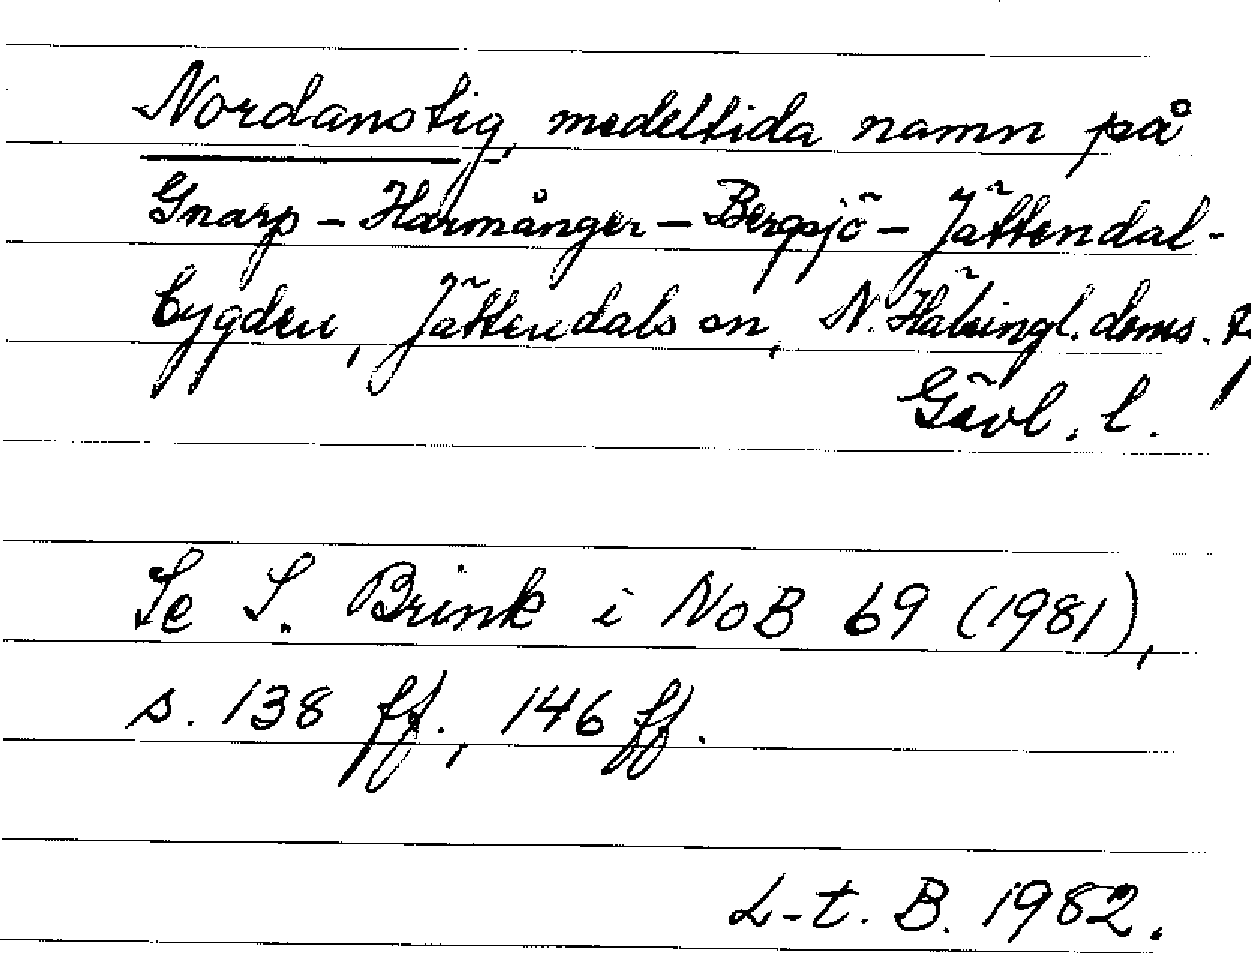 Nordanstig, medeltida namn på
Gnarp - Harmånger - Bergsjö - Jättendal-
bygden, Jättendals sn, N. Hälsingl. doms.
Gävl. l.
Se S. Brink i NoB 69 (1981),
s. 138 ff., 146 ff.
L-t. B. 1982.